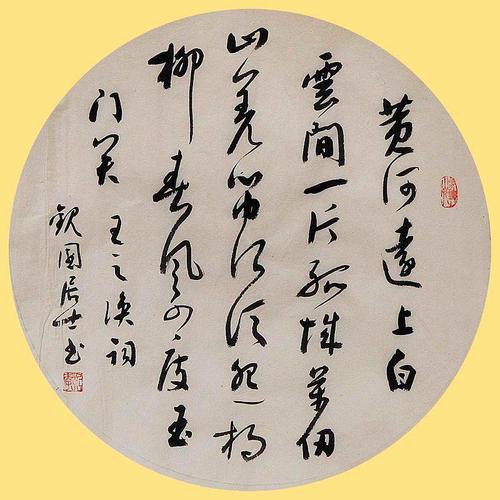 黄河遠上白
雲間一片孤城萬仞
山羌笛何须怨杨
柳春风不度玉
门关 王之涣词
観園居士书